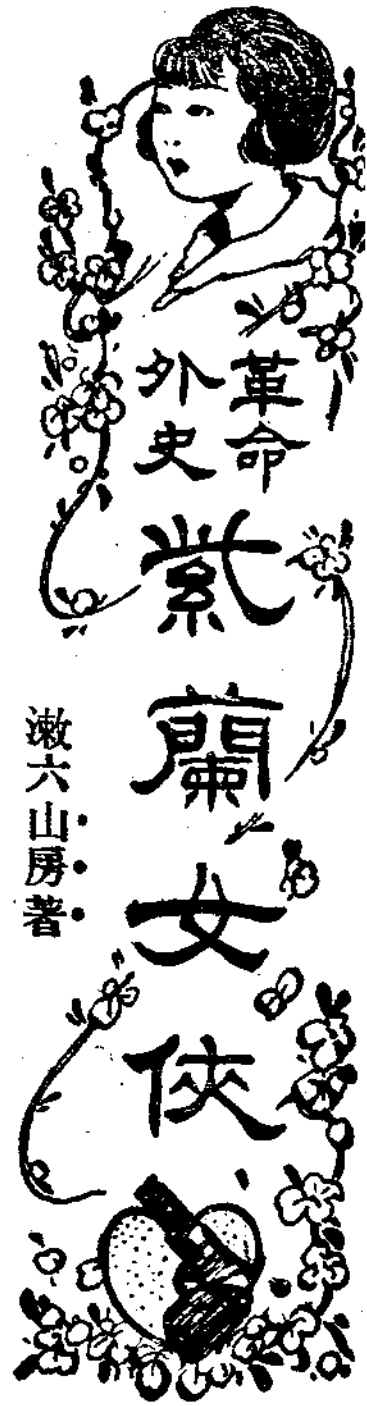 革命
外史
紫蘭女俠
漱六山房著